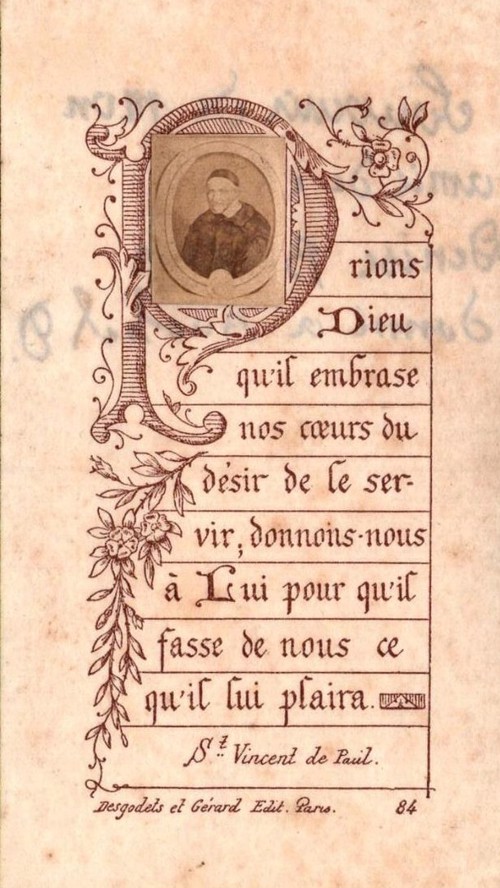 Prions
Dieu
qu'il embrase
nos cœurs du
désir de le ser-
vir; donnons-nous
à Lui pour qu'il
fasse de nous ce
qu'il lui plaira.
St Vincent de Paul.
Desgodets et Gérard Edit. Paris. 84